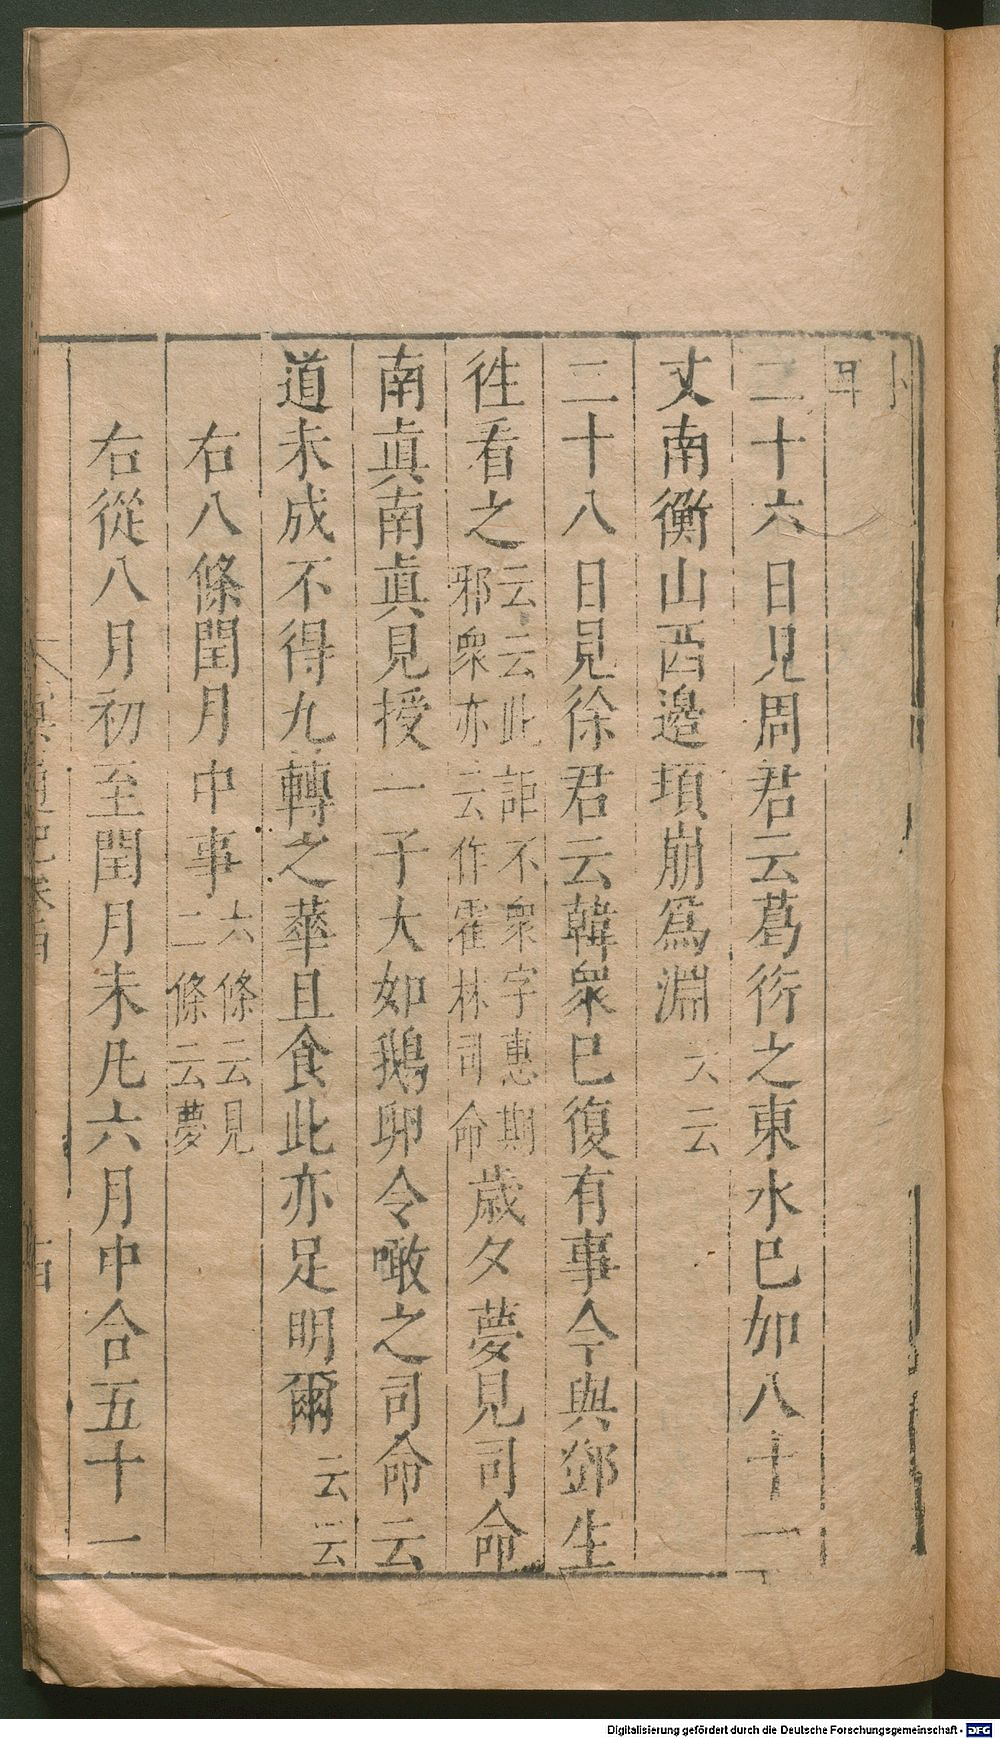 卜
耳
二十六日見周君云葛衍之東水巳如八十一
丈南衡山西邉項崩爲淵云云
二十八日見徐君云韓衆巳復有事今與鄧生
徃看之云云此詎不衆字惠期
邪衆亦云作霍林司命歲夕夢見司命
南眞南眞見授一子大如鵝卵令噉之司命云
道未成不得九轉之華且食此亦足明爾云云
右八條閏月中事六條云見
二條云夢
右從八月初至閏月末凡六月中合五十一
Digitalisierung gefördert durch die Deutsche Forschungsgemeinschaft - DFG